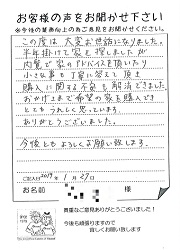 お客様の声をお聞かせ下さい
※今後の業務向上の為ご意見をお聞かせください。
この度は大変お世話になりました。
半年掛けて家を探しましたが
内覧で家のアドバイスを頂いたり
小さな事も丁寧に答えて頂き
購入に関する不安も解消できました
おかげさまで希望の家を購入でき
とてもうれしく思っています。
ありがとうございました。
今後ともよろしくお願い致します。
ご記入日2019年1月27日
お名前 様
貴重なご意見ありがとうございました!
今後も頑張りますので
宜しくお願い致します